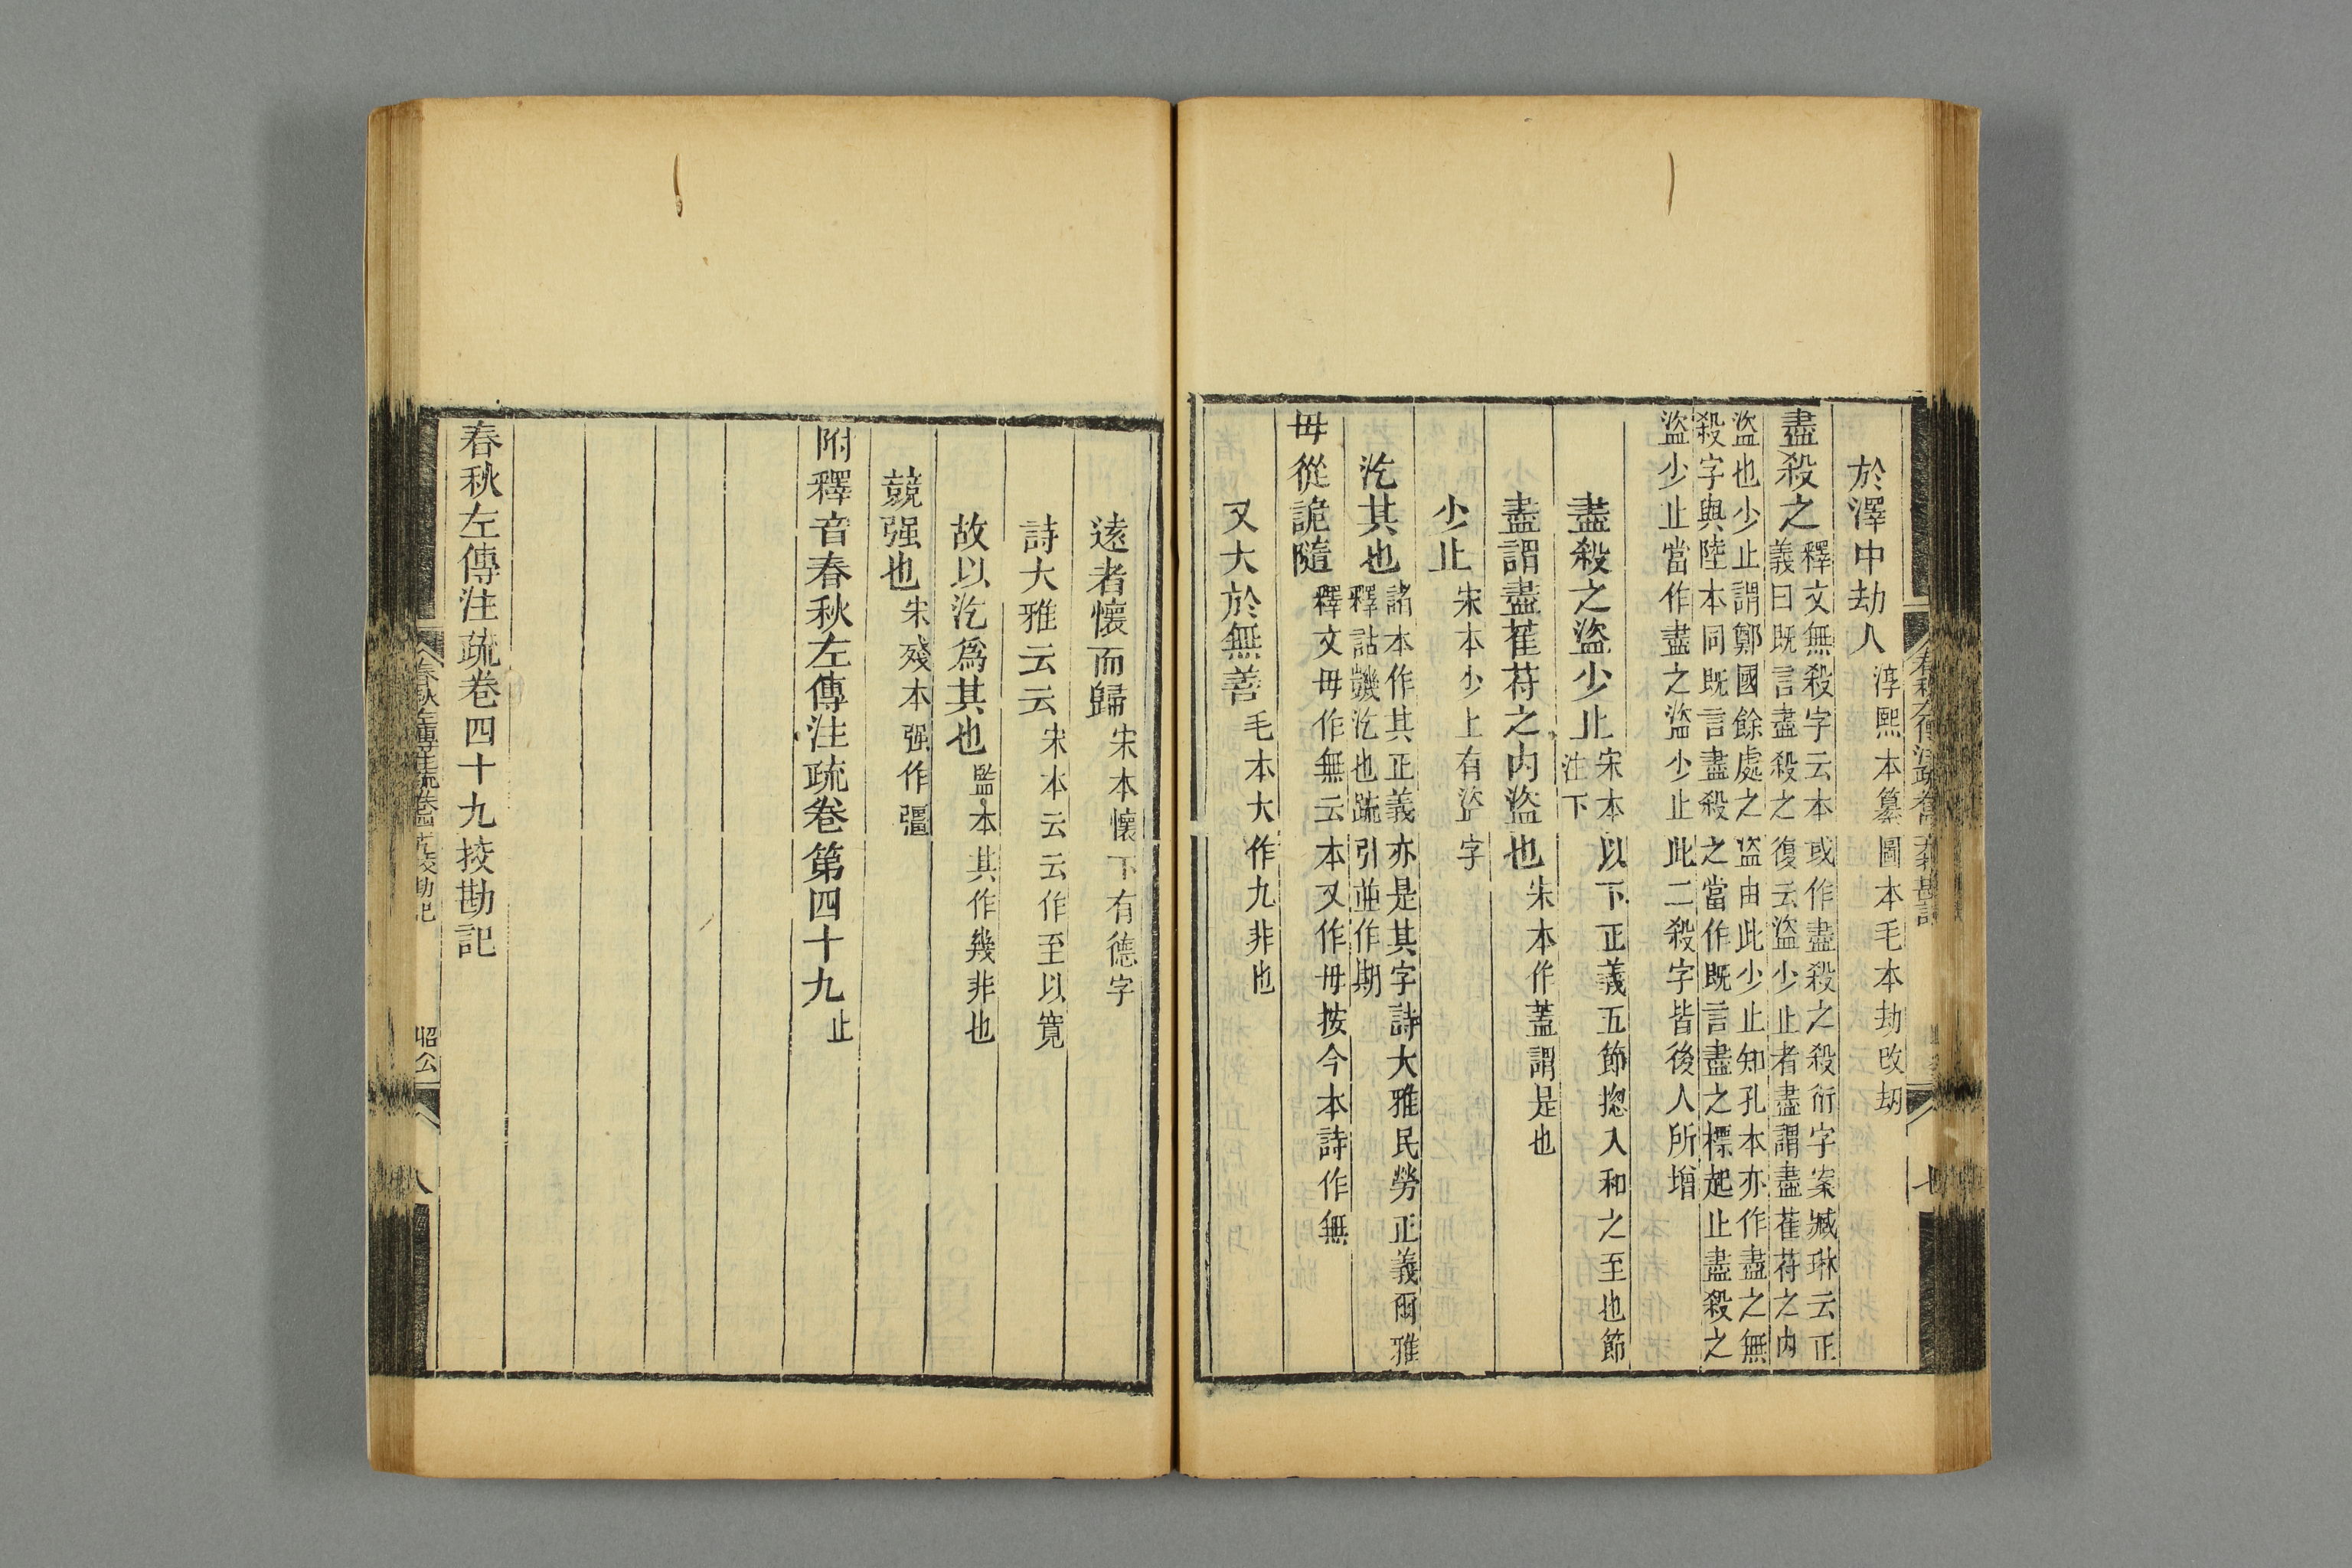 於澤中劫人淳熙本纂圖本毛本劫改刼
盡殺之釋文無殺字云本或作盡殺之殺衍字案臧琳云正
義曰既言盡殺之復云盜少止者盡謂盡萑苻之內
盜也少止謂鄭國餘處之盜由此少止知孔本亦作盡之無
殺字與陸本同既言盡殺之當作既言盡之標起止盡殺之
盜少止當作盡之盜少止此二殺字皆後人所增
盡殺之盜少止宋本以下正義五節揔入和之至也節
注下
盡謂盡萑苻之內盜也宋本作蓋謂是也
少止宋本少上有盜字
汔其也諸本作其正義亦是其字詩大雅民勞正義爾雅
釋詁譏汔也䟽引並作期
毋從詭隨釋文毋作無云本又作毋按今本詩作無
又大於無善毛本大作九非也
春秋左傳注疏卷四十九挍勘記
七
遠者懷而歸宋本懷下有德字
詩大雅云云宋本云云作至以寬
故以汔爲其也監本其作幾非也
競强也宋殘本强作彊
附釋音春秋左傳注疏卷第四十九止
春秋左傳注疏卷四十九挍勘記
春秋左傳注疏卷四十九挍勘記
昭公
八